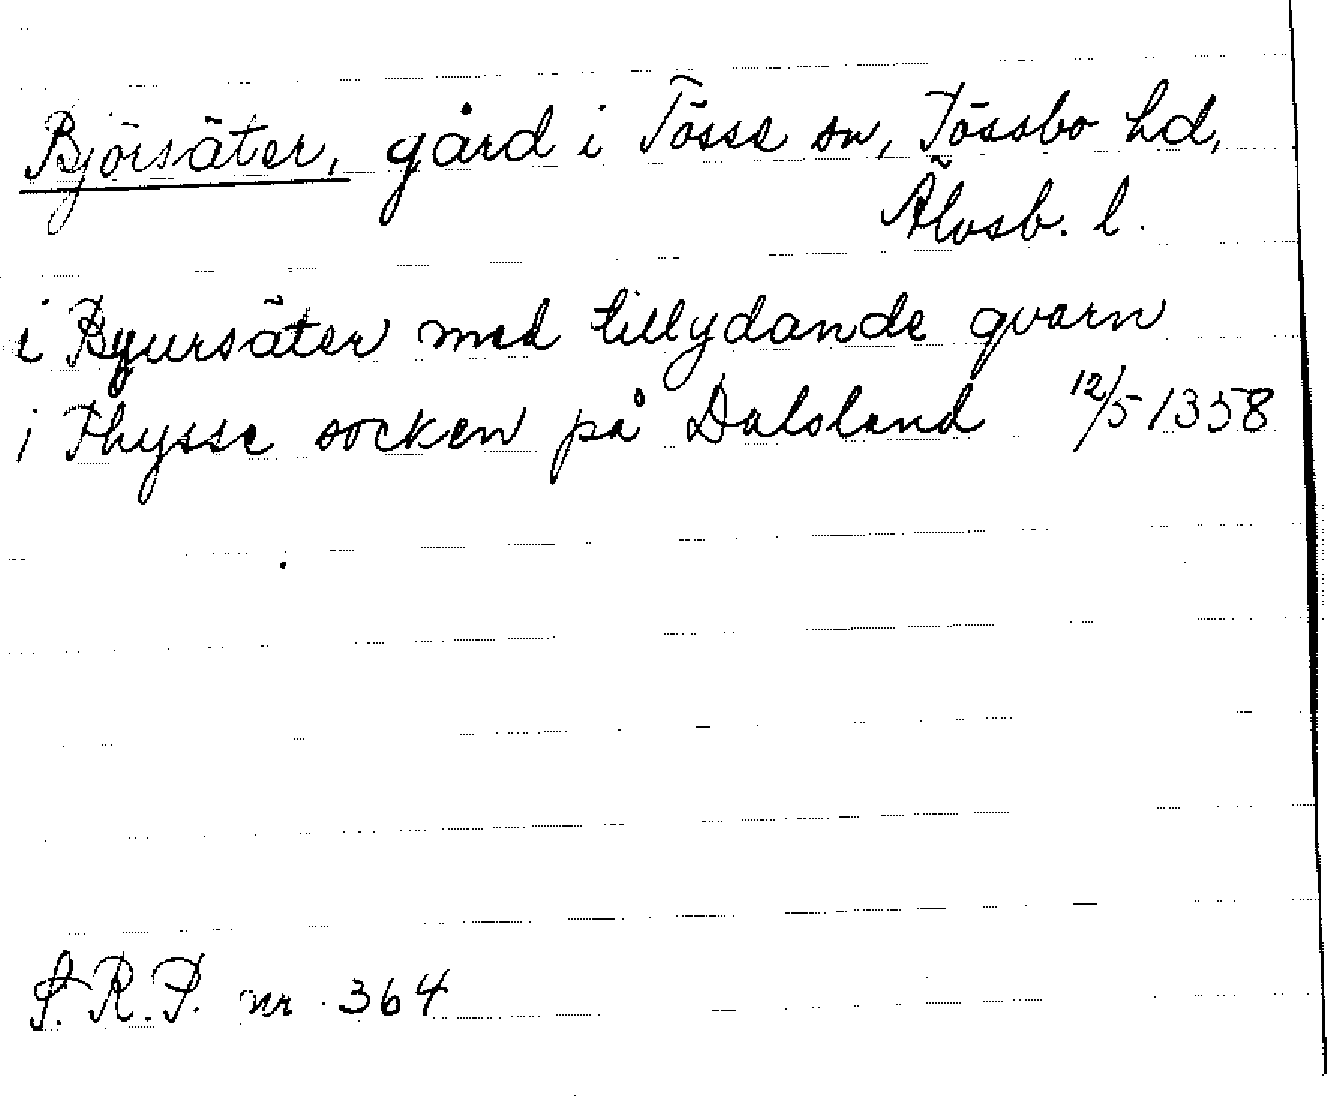 Björsäter, gård i Tösse sn, Tössbo hd,
Älvsb. l.
i Byursäter med tillydande qvarn
i Thysse socken på Dalsland 12/5 1358
S.R.P. nr 364